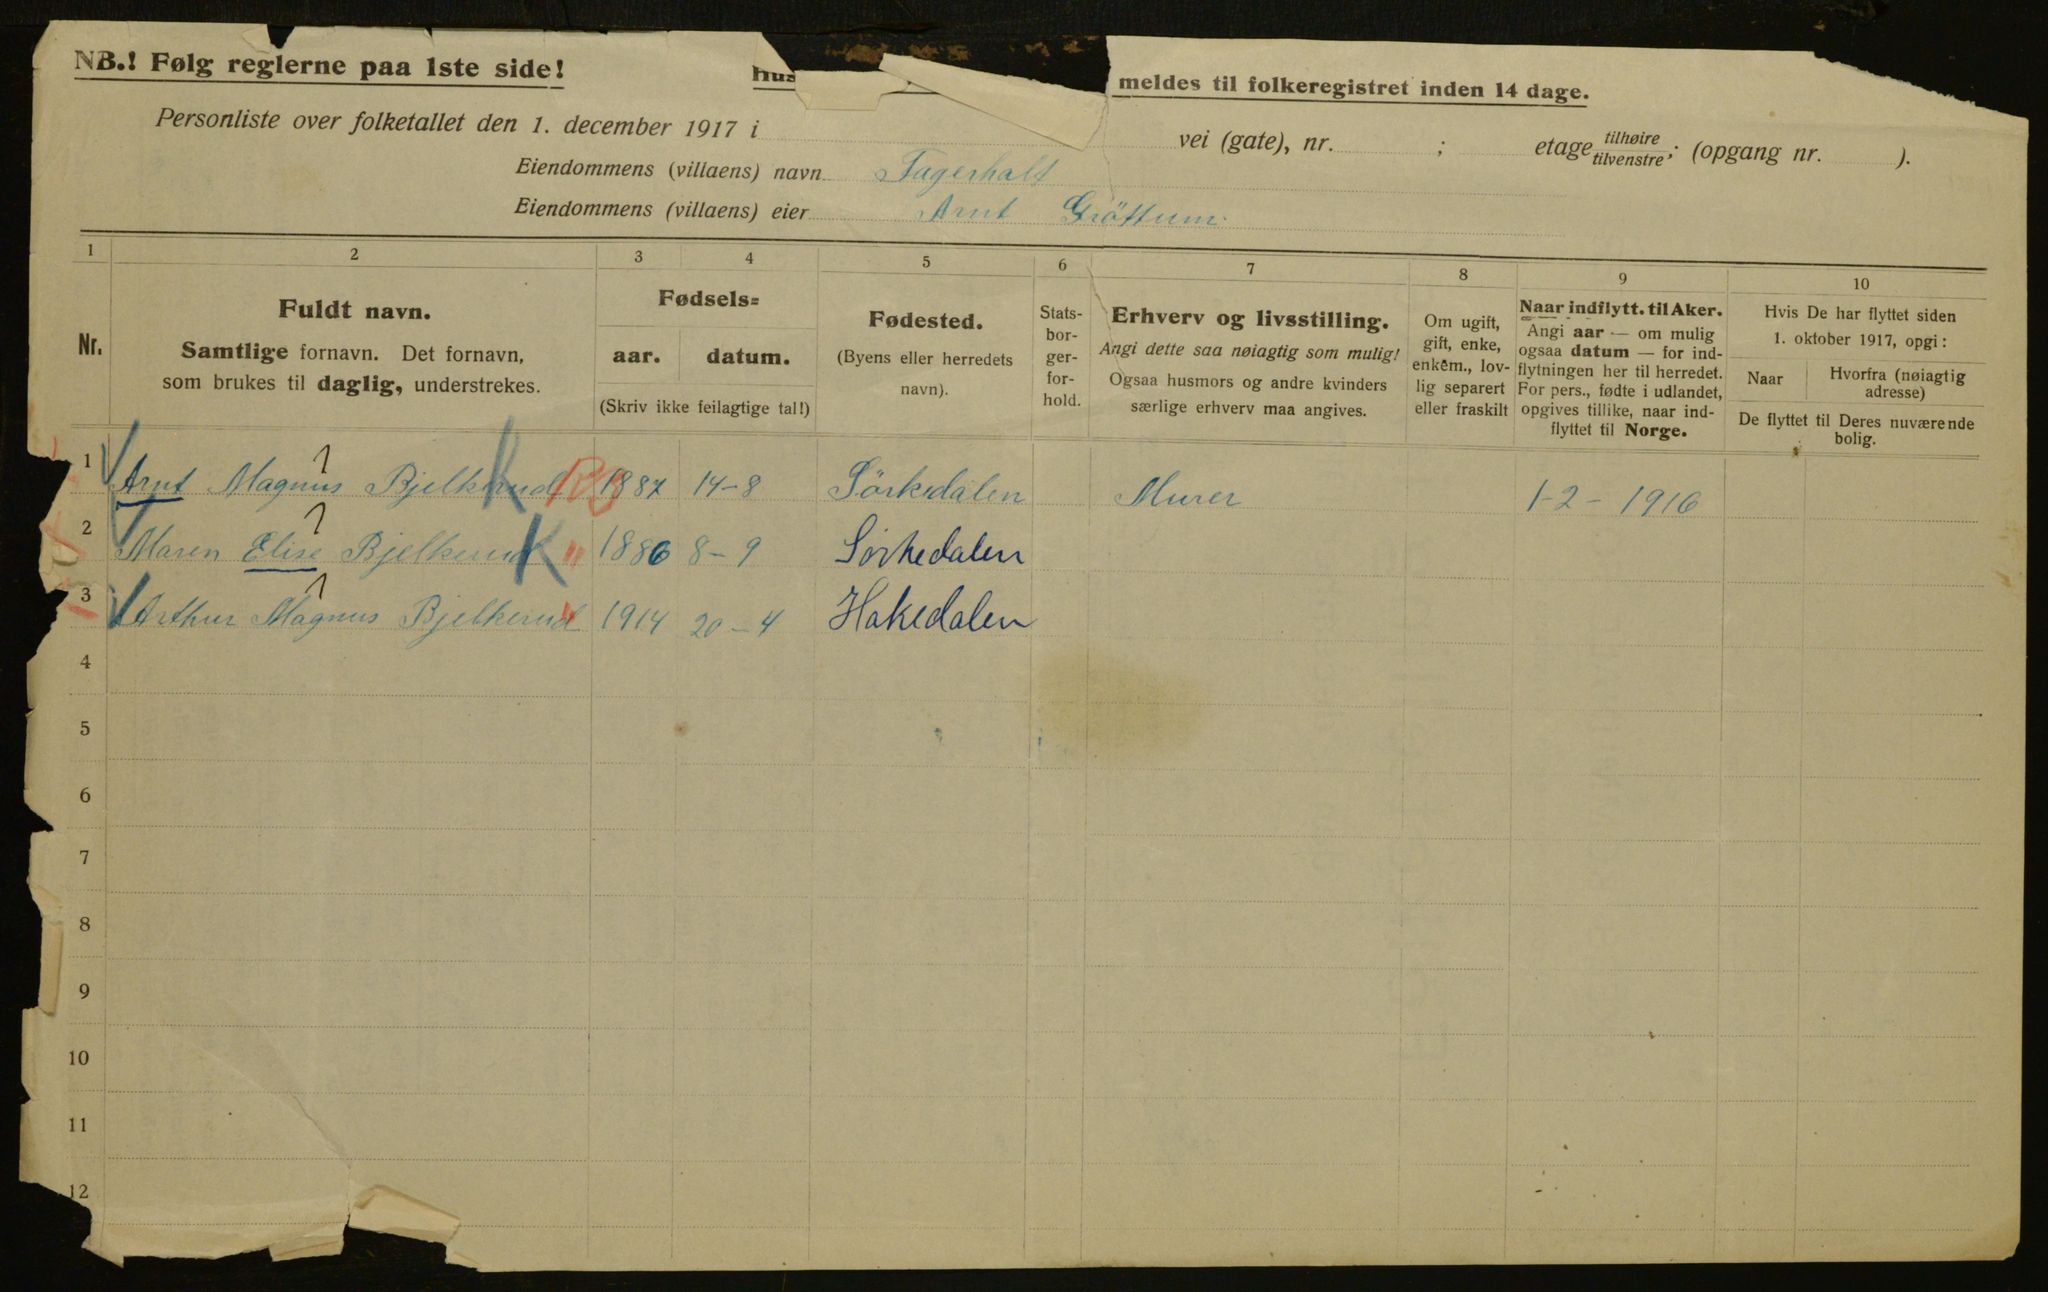 NB.! Følg reglerne paa 1ste side!
meldes til folkeregistret inden 14 dage.
Personliste over folketallet den 1. december 1917 i vei (gate), nr. ; etage tilhøire tilvenstre; (opgang nr. ).
Eiendommens (villaens) navn Fagerholt
Eiendommens (villaens) eier Arnt Gröttum
1 2 3 4 5 6 7 8 9 10
Nr.
Fuldt navn.
Samtlige fornavn. Det fornavn,
som brukes til daglig, understrekes.
Fødsels=
aar. datum.
(Skriv ikke feilagtige tal!)
Fødested.
(Byens eller herredets
navn).
Stats-
bor-
ger-
for-
hold.
Erhverv og livsstilling.
Angi dette saa nøiagtig som mulig!
Ogsaa husmors og andre kvinders
særlige erhverv maa angives.
Om ugift,
gift, enke,
enkem., lov-
lig separert
eller fraskilt
Naar indflytt. til Aker.
Angi aar — om mulig
ogsaa datum — for ind-
flytningen her til herredet.
For pers., fødte i udlandet,
opgives tillike, naar ind-
flyttet til Norge.
Hvis De har flyttet siden
1. oktober 1917, opgi:
Naar
Hvorfra (nøiagtig
adresse)
De flyttet til Deres nuværende
bolig.
1 Arnt Magnus Bjelkerud K 1887 14-8 Sörkedalen Murer 1-2-1916
2 Maren Elise Bjelkerud K " 1886 8-9 Sörkedalen
3 Arthur Magnus Bjelkerud " 1914 20-4 Hakedalen
4
5
6
7
8
9
10
11
12